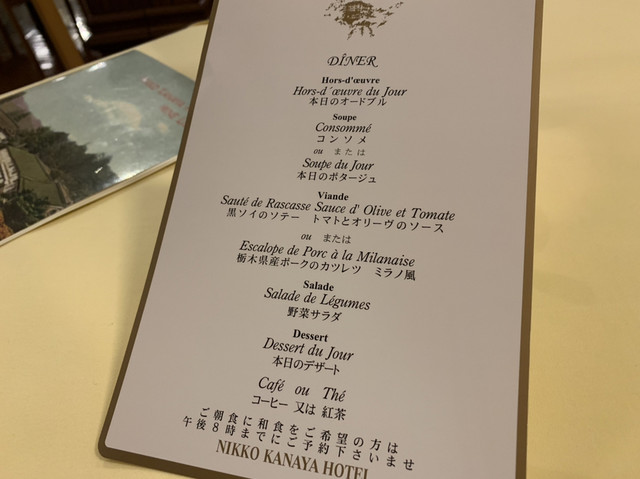 DÎNER
Hors-d'œuvre
Hors-d´œuvre du Jour
本日のオードブル
Soupe
Consommé
コンソメ
ou または
Soupe du Jour
本日のポタージュ
Viande
Sauté de Rascasse Sauce d' Olive et Tomate
黒ソイのソテー トマトとオリーヴのソース
ou または
Escalope de Porc à la Milanaise
栃木県産ポークのカツレツ ミラノ風
Salade
Salade de Légumes
野菜サラダ
Dessert
Dessert du Jour
本日のデザート
Café ou Thé
コーヒー 又は 紅茶
ご朝食に和食をご希望の方は
午後8時までにご予約下さいませ
NIKKO KANAYA HOTEL